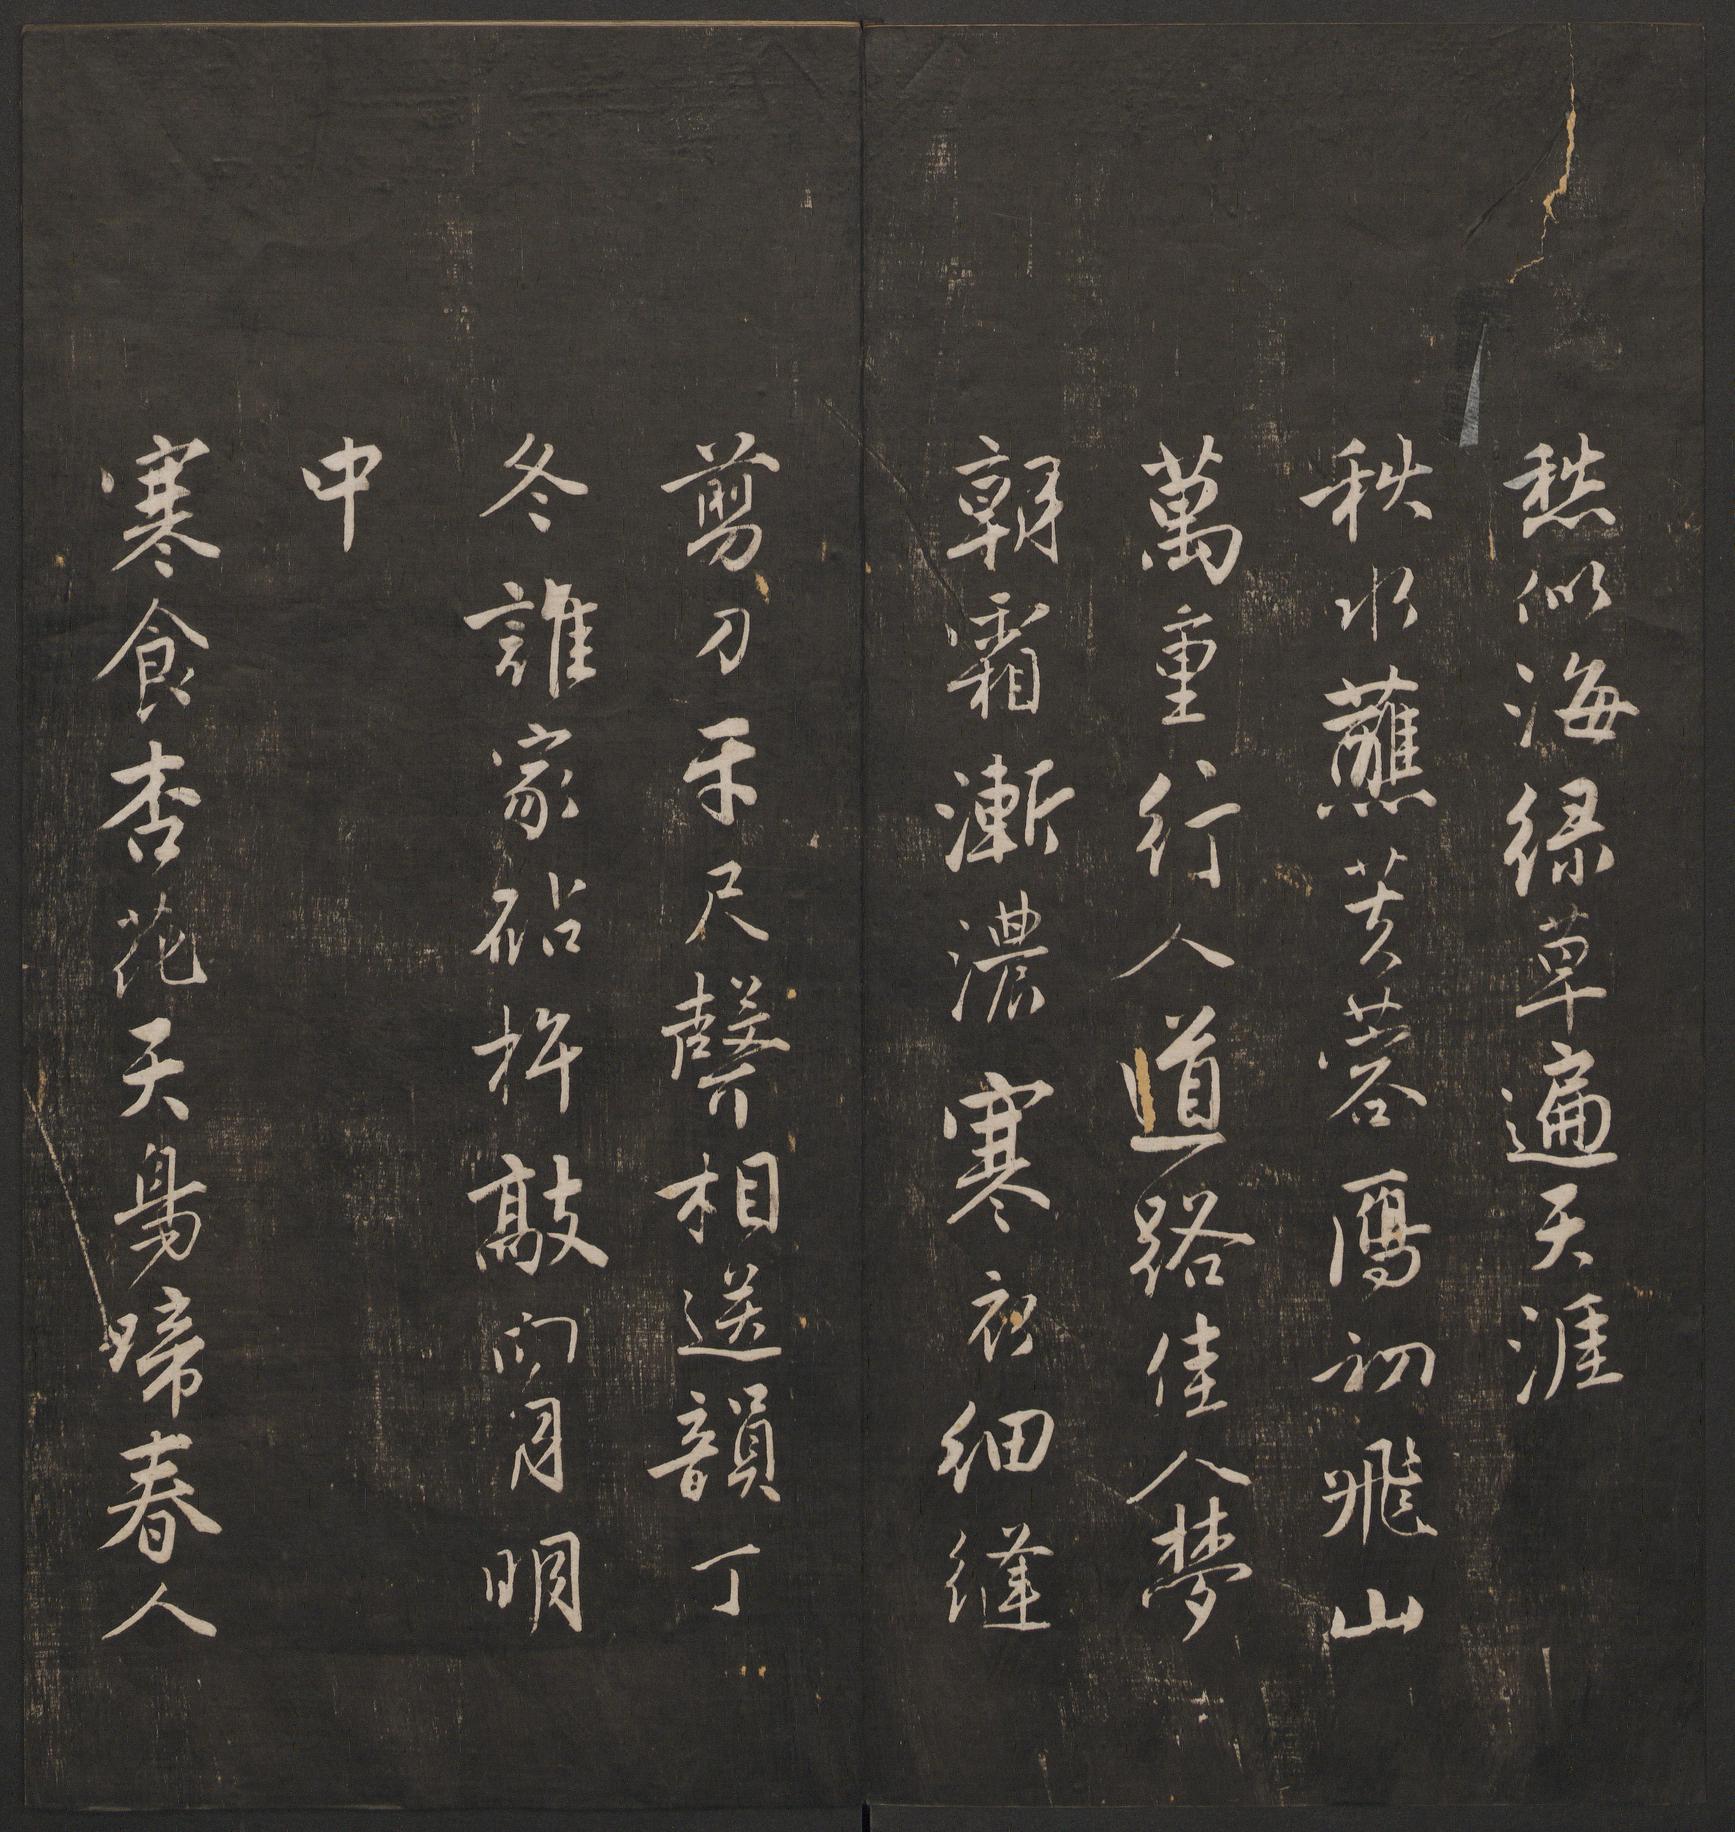 愁似海綠草遍天涯
秋水蘸芙蓉鴈初飛山
萬重行人道路佳人夢
朝霜漸濃寒衣細縫
剪刀牙尺聲相送韻丁
冬誰家砧杵敲向月明
中
寒食杏花天鳥啼春人